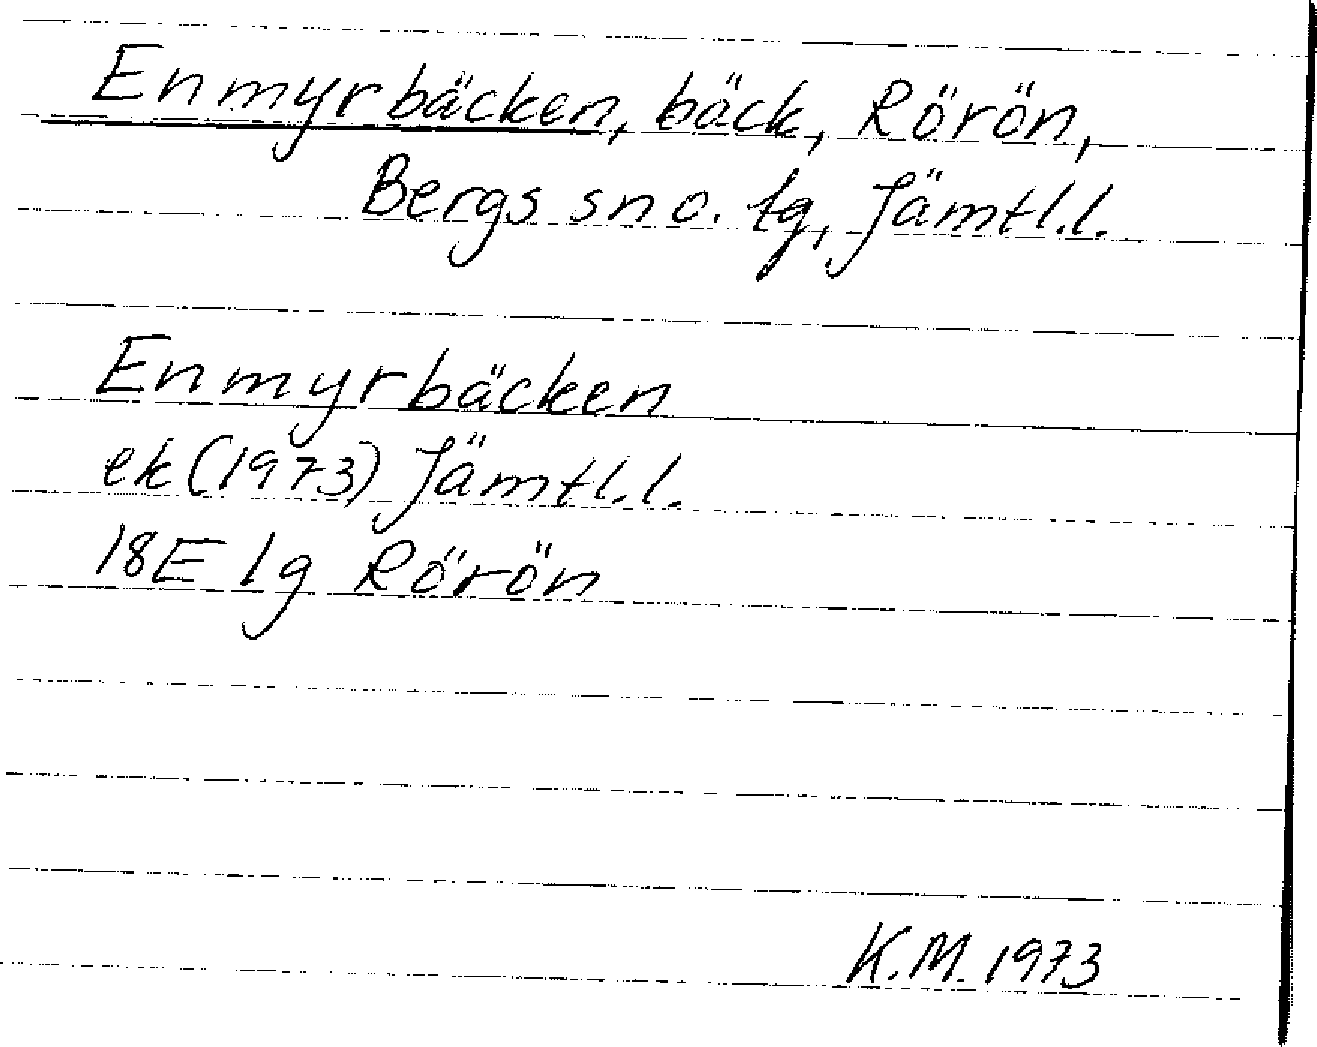 Enmyrbäcken, bäck, Rörön,
Bergs sn o. tg, Jämtl.l.
Enmyrbäcken
ek (1973) Jämtl.l.
18E 1g Rörön
K.M. 1973